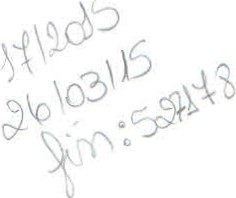 17/2015
26/03/15
fin: 527178